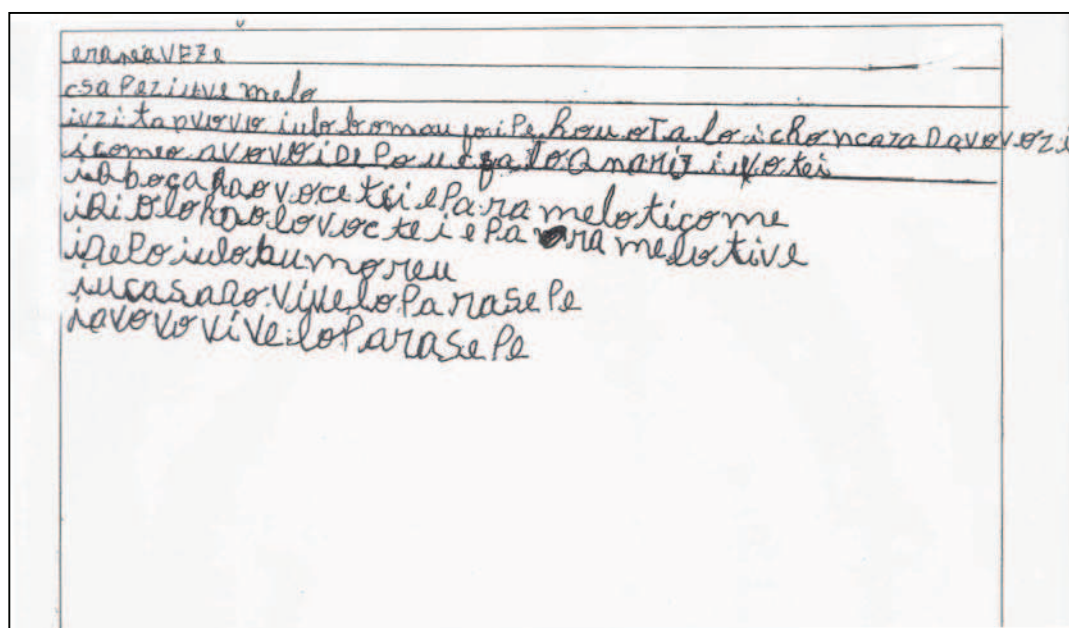 eraneaVEZe
csaPeziuve melo
ivzitapvovo iulobomau foiPehouoTaloichoncazaDavovozi
icomeo avovoiDePoucgaloQnariz i votei
iabocahaovocetiieParamelotiçome
iDiolohaolovocteiePara melotive
iDePoiulobumoreu
iucasadoviveloParaSePe
iavovoviveloParaSePe